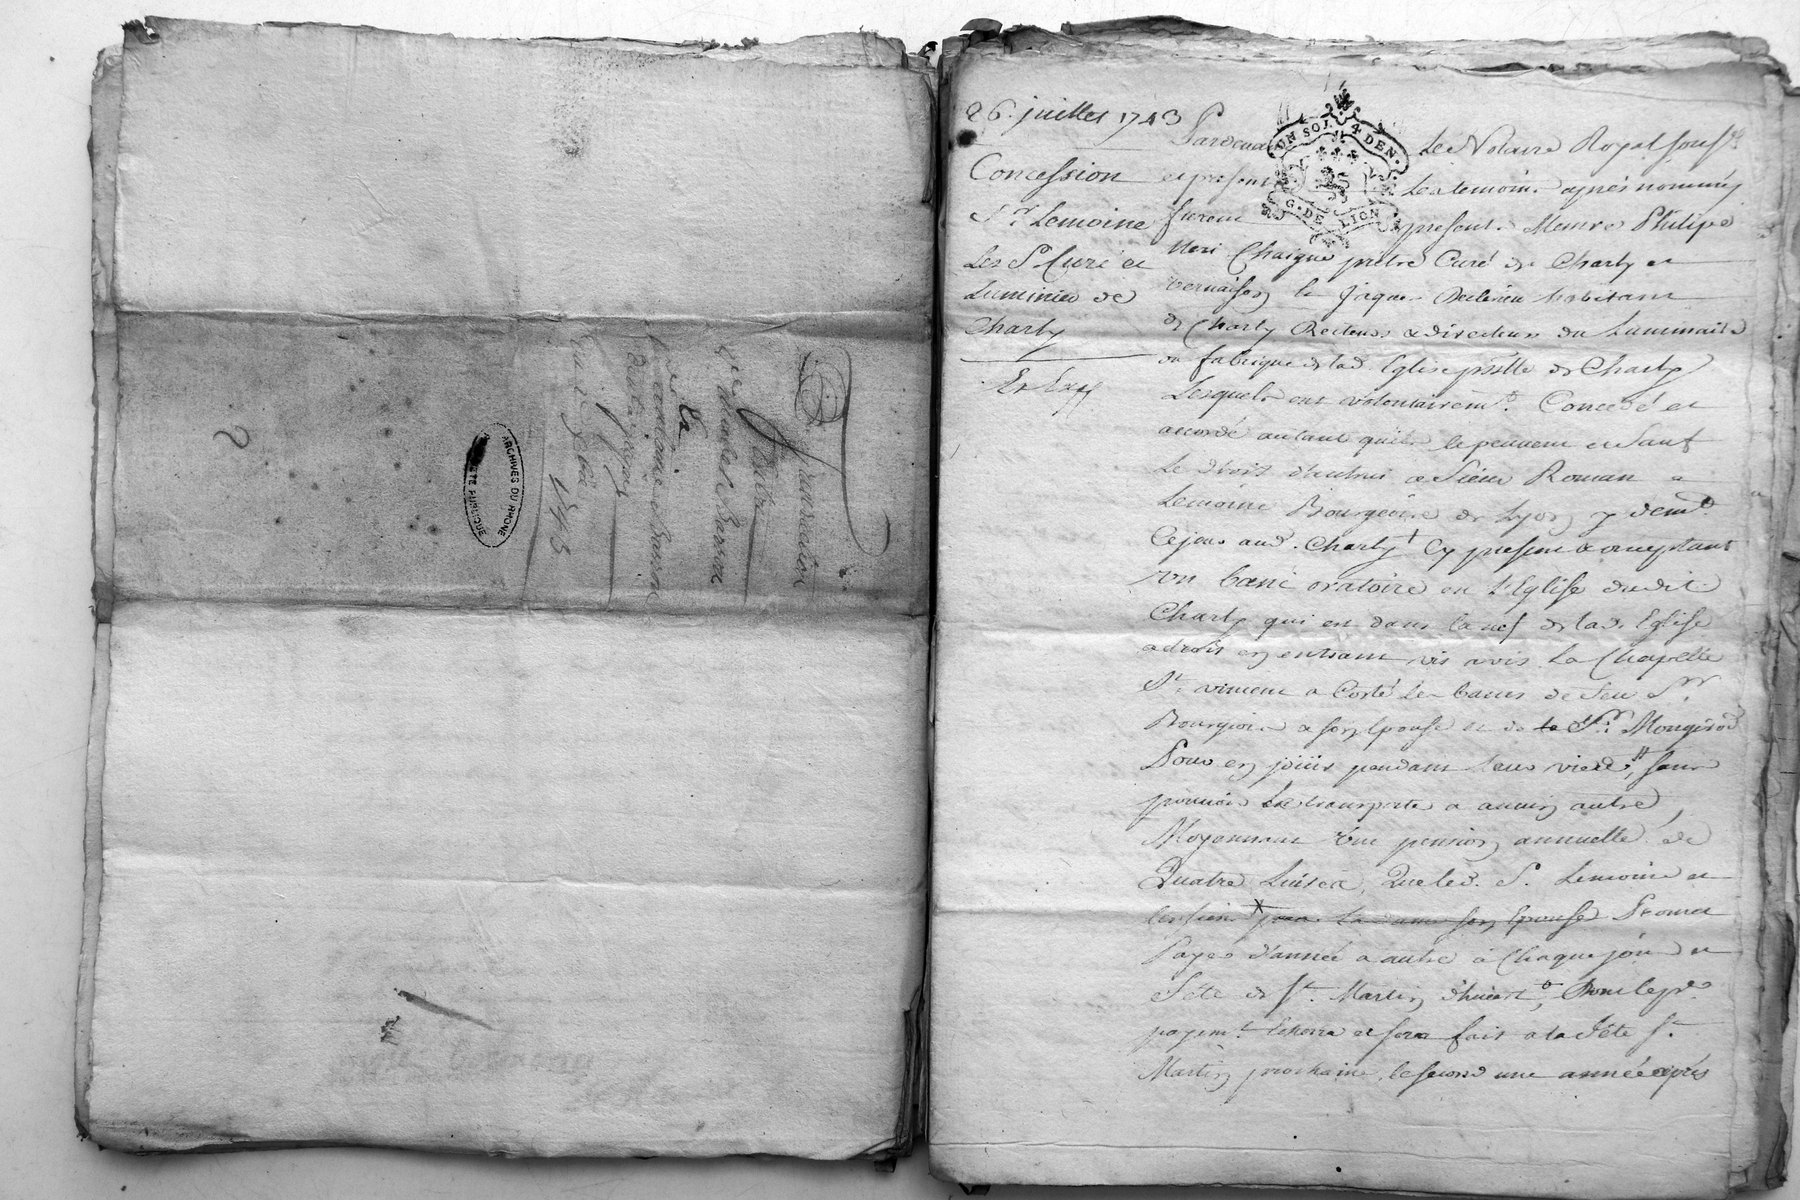 Transaction
Entre
Charles
&
Antoine
1743
2
ARCHIVES DU RHONE
26. juillet 1743
Concession
Sr. Lemoine
Les Sr Curé et
Luminier de
Charly
Et Exp
UN SOL 4 DEN.
G. DE LION
Pardevant Le Notaire Royal souss.é
et présent Les temoins après nommés
furent présent. Messire Philipe
Neri Chaigne prêtre Curé de Charly et
Vernaison Sr Jaque habitant
de Charly Recteurs & directeurs du Luminaire
ou fabrique de lad. Eglise de Charly
Lesquels ont volontairemt. Concedé et
accordé autant qu'ils le peuvent et Sauf
Le droit d'autrui a Sieur Roman
Lemoine Bourgeois de Lyon y demt.
Cejour aud. Charly Cy present & acceptant
un banc oratoire en l'Eglise dudit
Charly qui est dans la nef de lad. Eglise
a droit en entrant vis avis La Chapelle
St. vincent a Costé les bancs de feu Sr.
Bourgeois & son Epouse et de la Sr. Mongirod
Pour en joüir pendant leur vie sans
pouvoir Le transporter a aucun autre
Moyennant Une pension annuelle de
Quatre Livres Que led. S. Lemoine et
les siens pour La dame son Epouse Promet
Payer d'année a autre à Chaque jour et
Fête de St. Martin d'hivert, Dont le pr.
payemt. Echerra et sera fait a la Fête St.
Martin prochaine, le second une année après